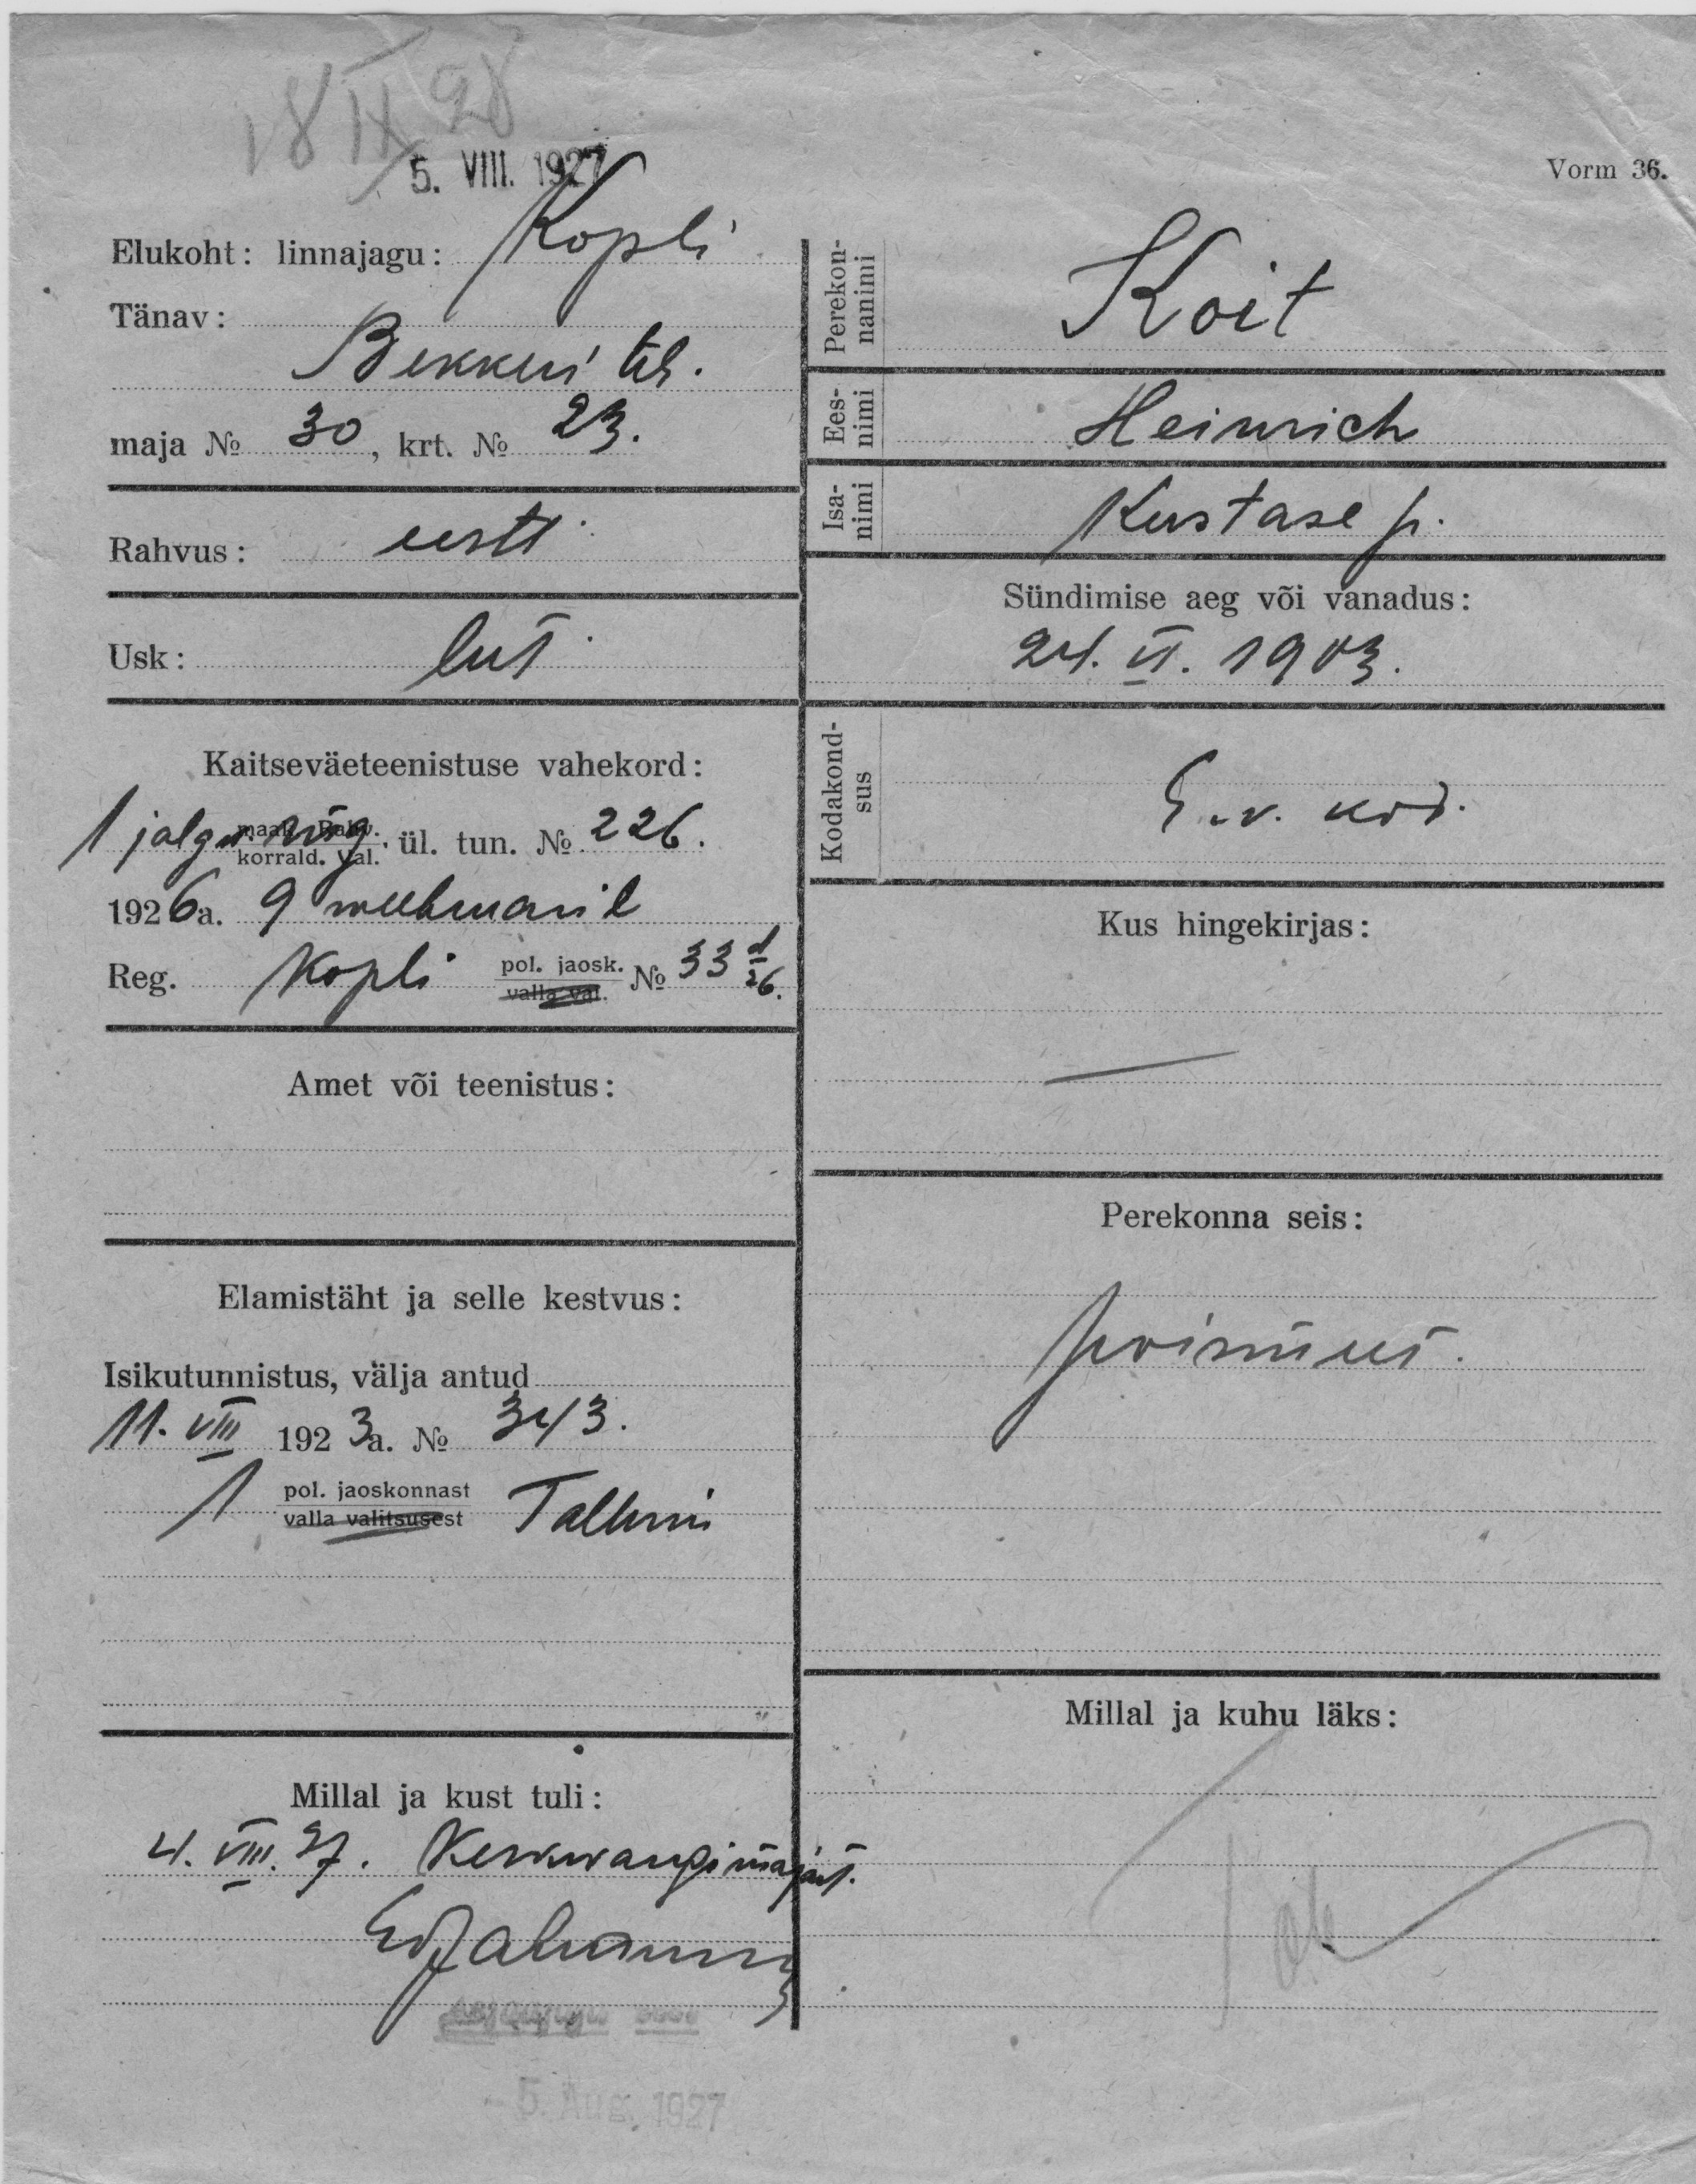 18 IX 28
5. VIII. 1927
Vorm 36.
Elukoht: linnajagu: Kopli
Tänav:
Bekkeri teh.
maja № 30, krt. № 23.
Rahvus: eesti
Usk: lut
Kaitseväeteenistuse vahekord:
1 jalgw. rüg. maak. Rahv. korrald. Val. ül. tun. № 226.
1926a. 9 weebruaril
Reg. Kopli pol. jaosk. valla val. № 33 d/26.
Amet või teenistus:
Elamistäht ja selle kestvus:
Isikutunnistus, välja antud
11. VIII 1923a. № 343.
1 pol. jaoskonnast valla valitsusest Tallinn
Millal ja kust tuli:
4. VIII. 27. Keskwangimajast.
5. Aug. 1927
Perekonnanimi
Koit
Eesnimi
Heinrich
Isanimi
Kustase p.
Sündimise aeg või vanadus:
24. VI. 1903.
Kodakondsus
E.v. kod.
Kus hingekirjas:
—
Perekonna seis:
poismees.
Millal ja kuhu läks: